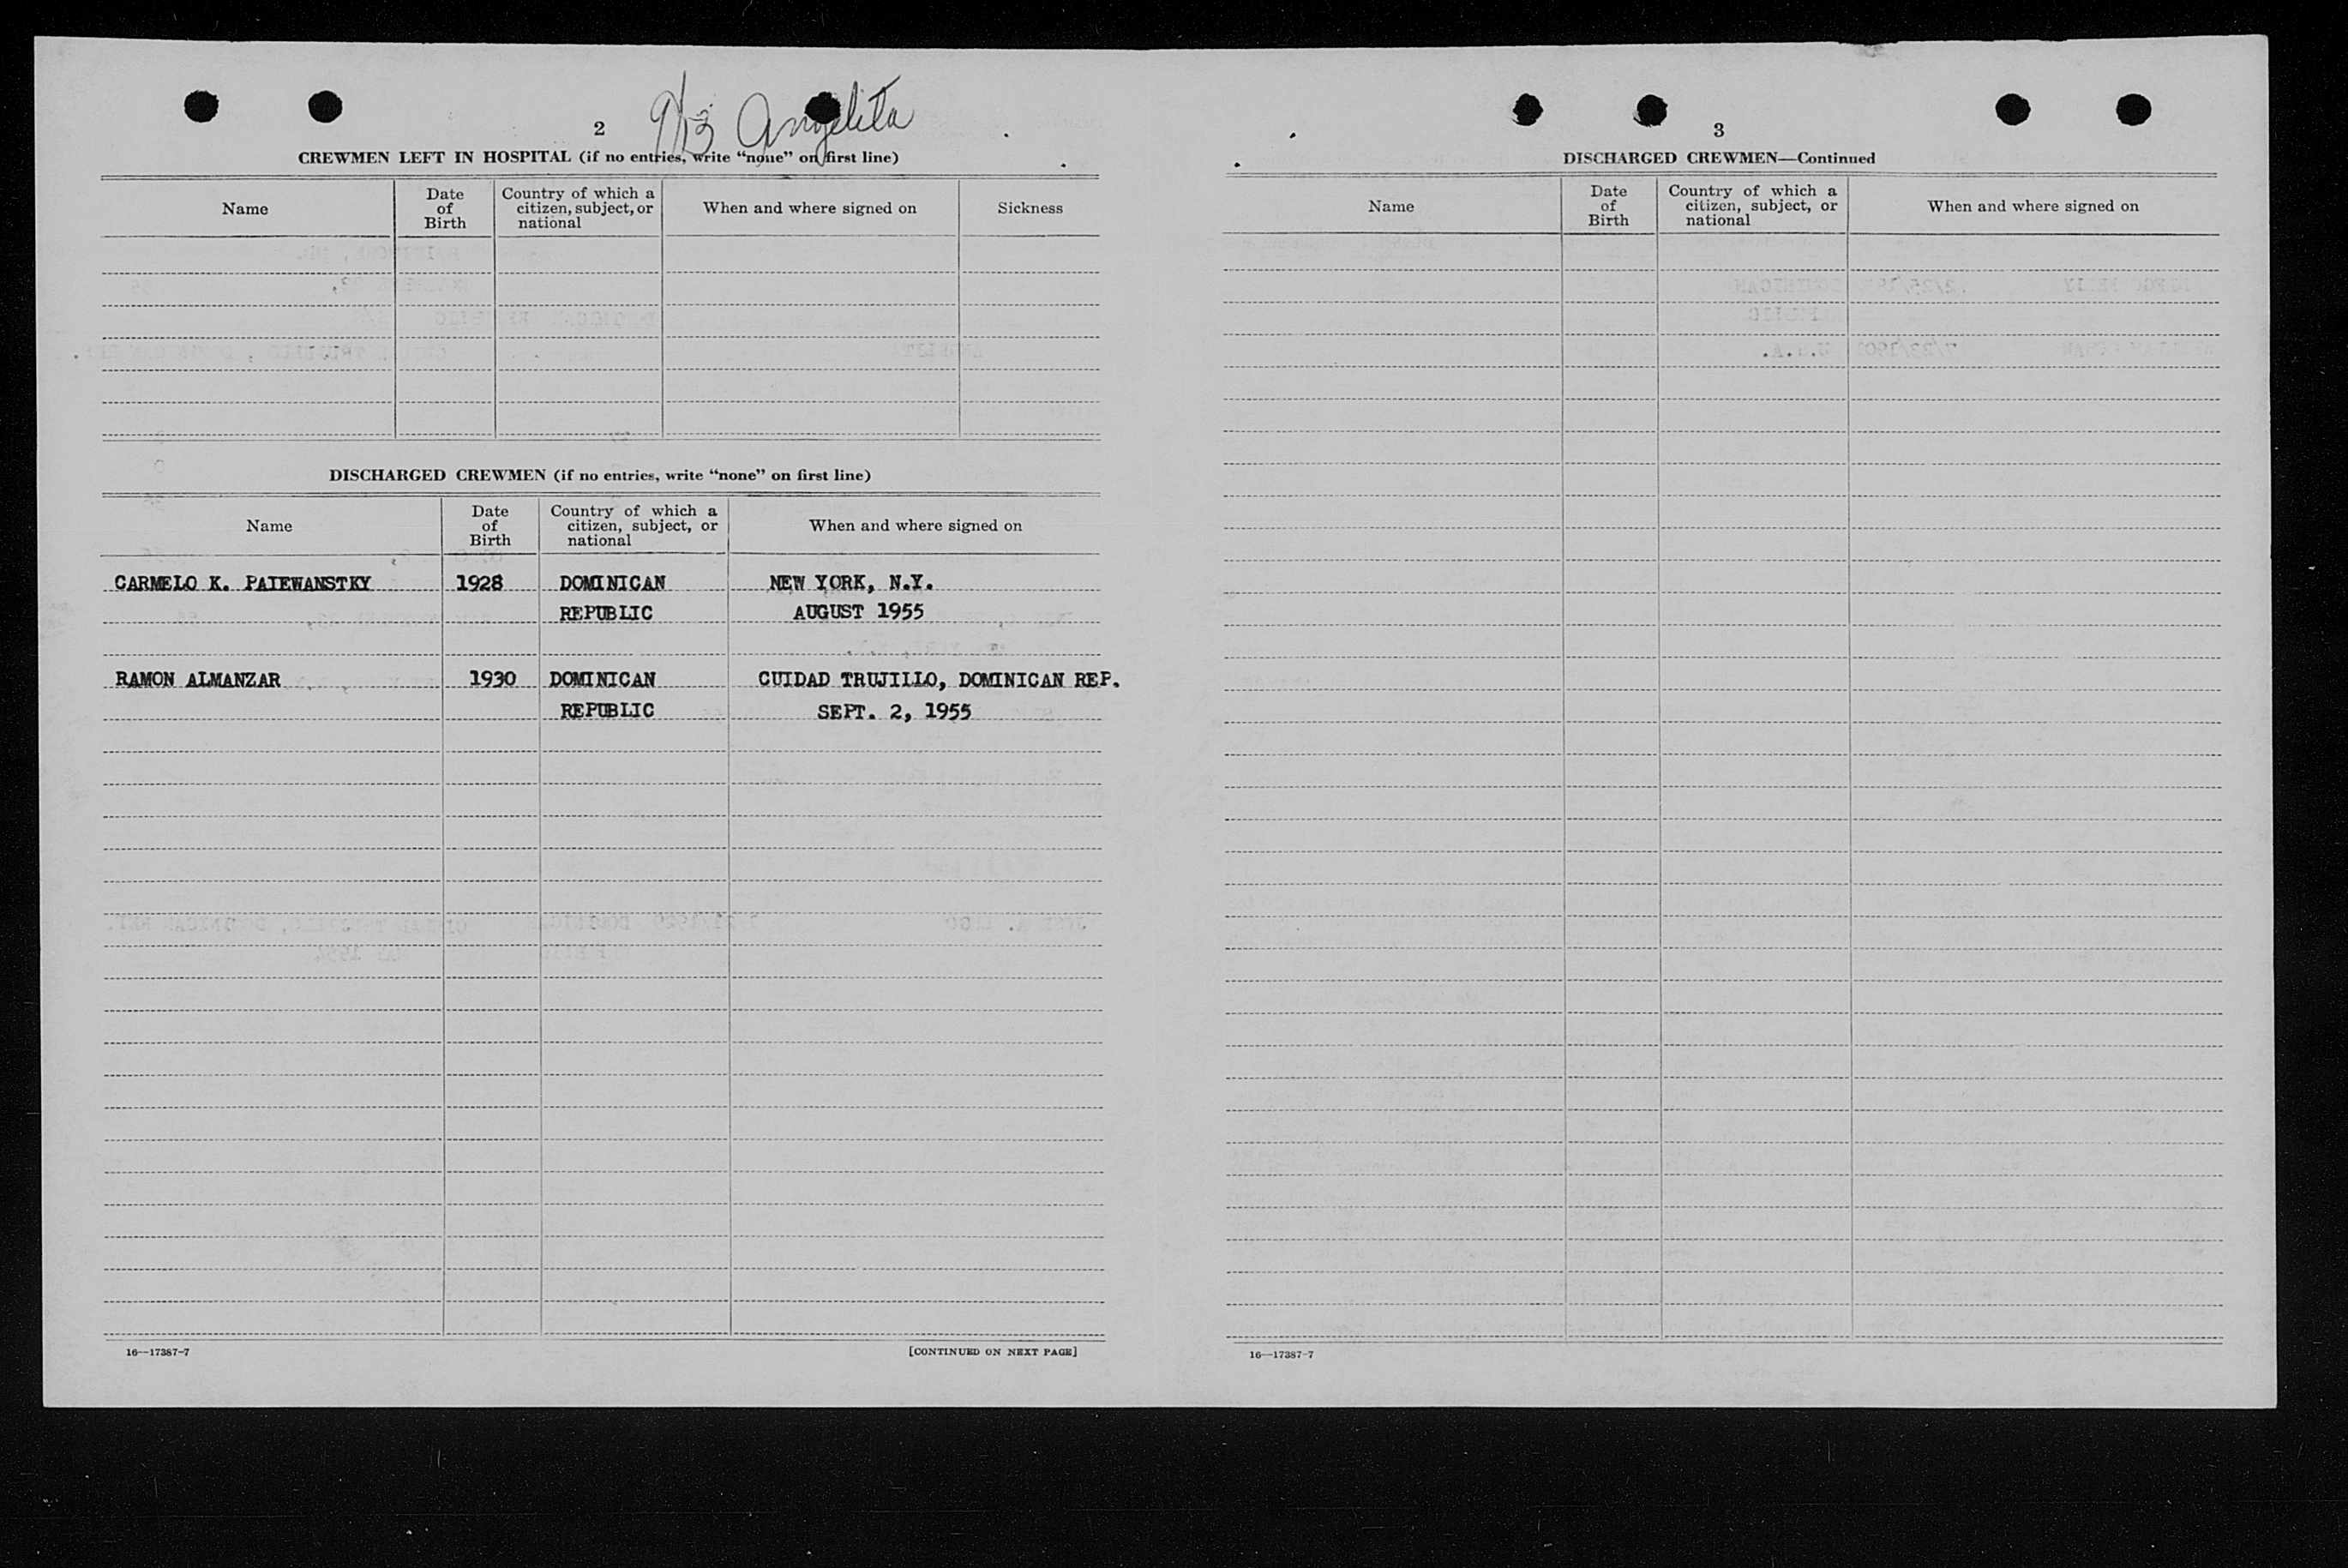 2
9/13 Angelita
CREWMEN LEFT IN HOSPITAL (if no entries, write “none” on first line)
Name
Date of Birth
Country of which a citizen, subject, or national
When and where signed on
Sickness
DISCHARGED CREWMEN (if no entries, write “none” on first line)
Name
Date of Birth
Country of which a citizen, subject, or national
When and where signed on
CARMELO K. PAIEWANSTKY 1928 DOMINICAN NEW YORK, N.Y.
REPUBLIC AUGUST 1955
RAMON ALMANZAR 1930 DOMINICAN CUIDAD TRUJILLO, DOMINICAN REP.
REPUBLIC SEPT. 2, 1955
16—17387-7
[CONTINUED ON NEXT PAGE]
3
DISCHARGED CREWMEN—Continued
Name
Date of Birth
Country of which a citizen, subject, or national
When and where signed on
16—17387-7